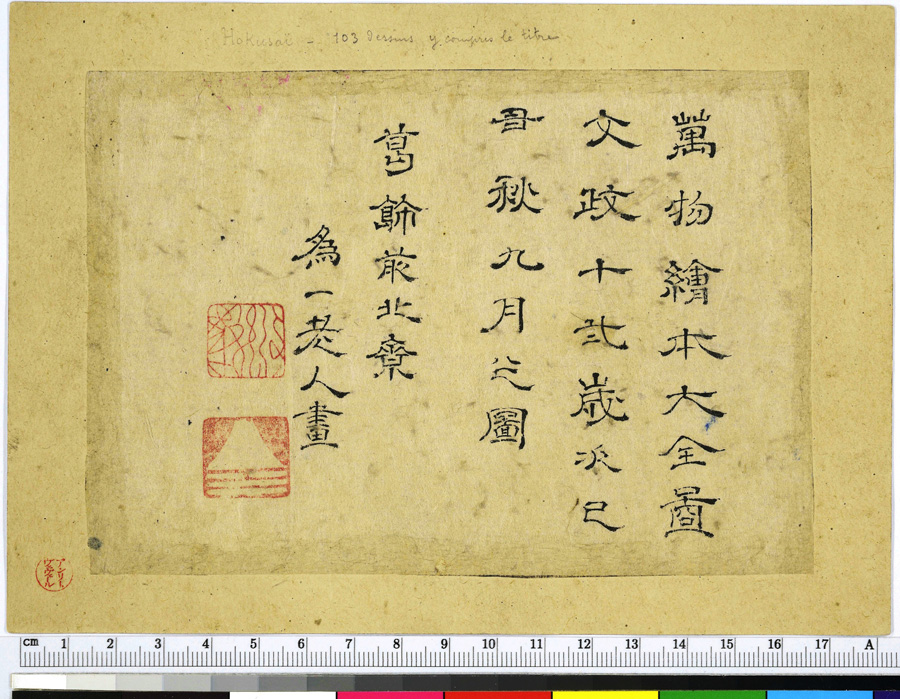 Hokusaï - 103 dessins, y compris le titre
萬物繪本大全圖
文政十弐歳
秋九月之圖
葛飾前北齋
為一老人畫
cm 1 2 3 4 5 6 7 8 9 10 11 12 13 14 15 16 17 A